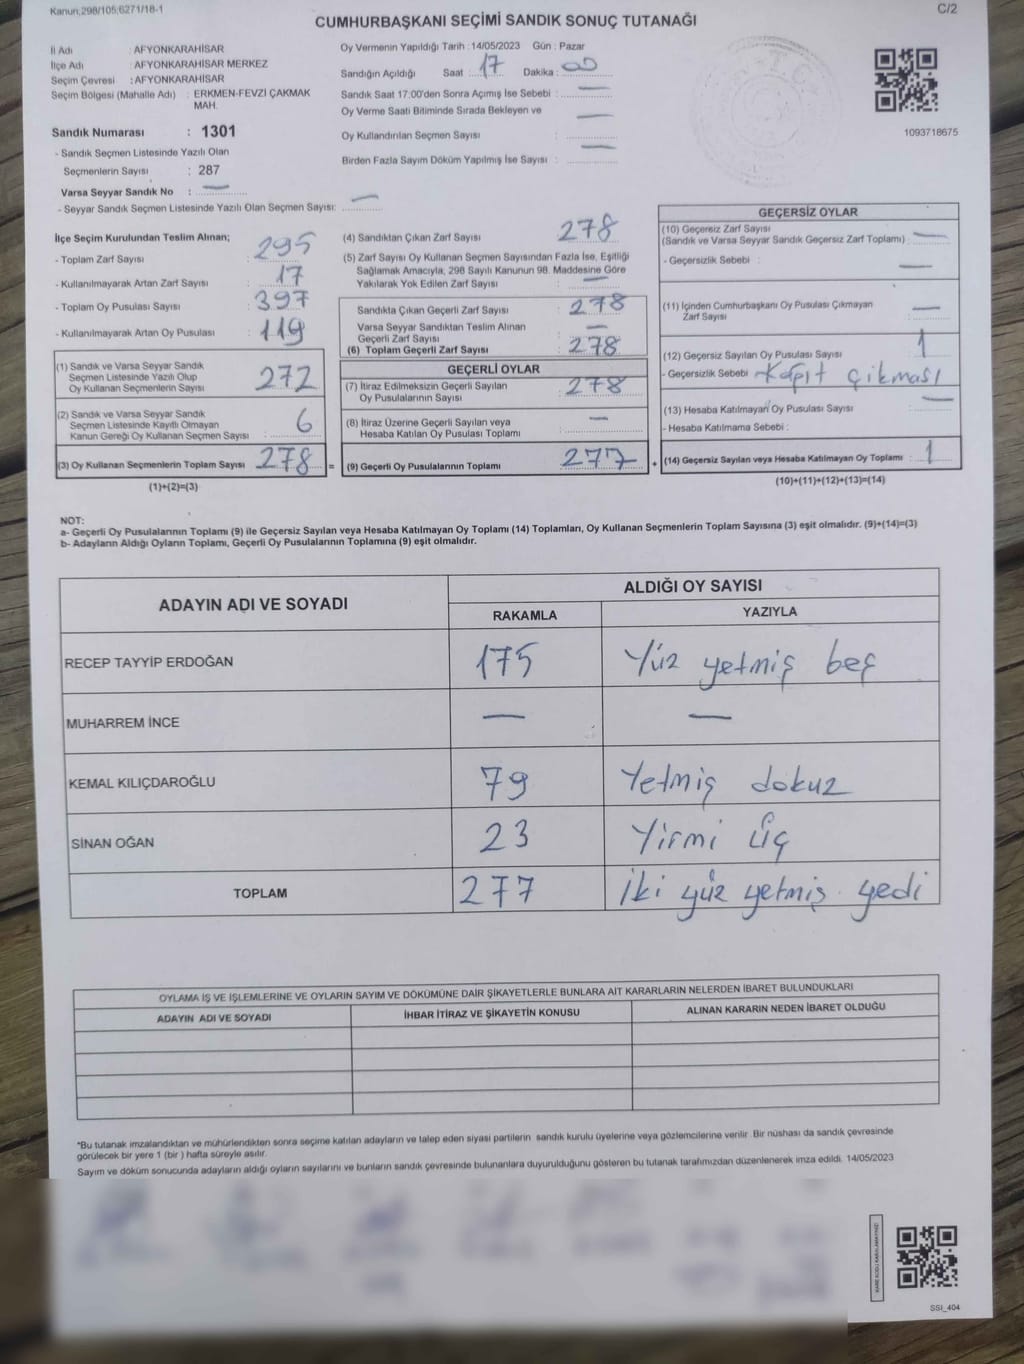 Kanun,298/105,6271/18-1
C/2
CUMHURBAŞKANI SEÇİMİ SANDIK SONUÇ TUTANAĞI
İl Adı : AFYONKARAHİSAR
İlçe Adı : AFYONKARAHİSAR MERKEZ
Seçim Çevresi : AFYONKARAHİSAR
Seçim Bölgesi (Mahalle Adı) : ERKMEN-FEVZİ ÇAKMAK
MAH.
Sandık Numarası : 1301
- Sandık Seçmen Listesinde Yazılı Olan
Seçmenlerin Sayısı : 287
Varsa Seyyar Sandık No : —
- Seyyar Sandık Seçmen Listesinde Yazılı Olan Seçmen Sayısı: —
Oy Vermenin Yapıldığı Tarih : 14/05/2023 Gün : Pazar
Sandığın Açıldığı Saat : 17 Dakika : 00
Sandık Saat 17:00'den Sonra Açımış İse Sebebi : —
Oy Verme Saati Bitiminde Sırada Bekleyen ve
Oy Kullandırılan Seçmen Sayısı : —
Birden Fazla Sayım Döküm Yapılmış İse Sayısı : —
1093718675
İlçe Seçim Kurulundan Teslim Alınan;
- Toplam Zarf Sayısı : 295
- Kullanılmayarak Artan Zarf Sayısı : 17
- Toplam Oy Pusulası Sayısı : 397
- Kullanılmayarak Artan Oy Pusulası : 119
(1) Sandık ve Varsa Seyyar Sandık
Seçmen Listesinde Yazılı Olup
Oy Kullanan Seçmenlerin Sayısı : 272
(2) Sandık ve Varsa Seyyar Sandık
Seçmen Listesinde Kayıtlı Olmayan
Kanun Gereği Oy Kullanan Seçmen Sayısı : 6
(3) Oy Kullanan Seçmenlerin Toplam Sayısı : 278 =
(1)+(2)=(3)
(4) Sandıktan Çıkan Zarf Sayısı : 278
(5) Zarf Sayısı Oy Kullanan Seçmen Sayısından Fazla İse, Eşitliği
Sağlamak Amacıyla, 298 Sayılı Kanunun 98. Maddesine Göre
Yakılarak Yok Edilen Zarf Sayısı : —
Sandıkta Çıkan Geçerli Zarf Sayısı : 278
Varsa Seyyar Sandıktan Teslim Alınan
Geçerli Zarf Sayısı : —
(6) Toplam Geçerli Zarf Sayısı : 278
GEÇERLİ OYLAR
(7) İtiraz Edilmeksizin Geçerli Sayılan
Oy Pusulalarının Sayısı : 278
(8) İtiraz Üzerine Geçerli Sayılan veya
Hesaba Katılan Oy Pusulası Toplamı : —
(9) Geçerli Oy Pusulalarının Toplamı : 277 +
GEÇERSİZ OYLAR
(10) Geçersiz Zarf Sayısı
(Sandık ve Varsa Seyyar Sandık Geçersiz Zarf Toplamı) : —
- Geçersizlik Sebebi : —
(11) İçinden Cumhurbaşkanı Oy Pusulası Çıkmayan
Zarf Sayısı : —
(12) Geçersiz Sayılan Oy Pusulası Sayısı : 1
- Geçersizlik Sebebi : çıkması
(13) Hesaba Katılmayan Oy Pusulası Sayısı : —
- Hesaba Katılmama Sebebi :
(14) Geçersiz Sayılan veya Hesaba Katılmayan Oy Toplamı : 1
(10)+(11)+(12)+(13)=(14)
NOT:
a- Geçerli Oy Pusulalarının Toplamı (9) ile Geçersiz Sayılan veya Hesaba Katılmayan Oy Toplamı (14) Toplamları, Oy Kullanan Seçmenlerin Toplam Sayısına (3) eşit olmalıdır. (9)+(14)=(3)
b- Adayların Aldığı Oyların Toplamı, Geçerli Oy Pusulalarının Toplamına (9) eşit olmalıdır.
ADAYIN ADI VE SOYADI ALDIĞI OY SAYISI
RAKAMLA YAZIYLA
RECEP TAYYİP ERDOĞAN 175 Yüz yetmiş beş
MUHARREM İNCE — —
KEMAL KILIÇDAROĞLU 79 Yetmiş dokuz
SİNAN OĞAN 23 Yirmi üç
TOPLAM 277 iki yüz yetmiş yedi
OYLAMA İŞ VE İŞLEMLERİNE VE OYLARIN SAYIM VE DÖKÜMÜNE DAİR ŞİKAYETLERLE BUNLARA AİT KARARLARIN NELERDEN İBARET BULUNDUKLARI
ADAYIN ADI VE SOYADI İHBAR İTİRAZ VE ŞİKAYETİN KONUSU ALINAN KARARIN NEDEN İBARET OLDUĞU
*Bu tutanak imzalandıktan ve mühürlendikten sonra seçime katılan adayların ve talep eden siyasi partilerin sandık kurulu üyelerine veya gözlemcilerine verilir. Bir nüshası da sandık çevresinde
görülecek bir yere 1 (bir ) hafta süreyle asılır.
Sayım ve döküm sonucunda adayların aldığı oyların sayılarını ve bunların sandık çevresinde bulunanlara duyurulduğunu gösteren bu tutanak tarafımızdan düzenlenerek imza edildi. 14/05/2023
KARE KODU KARALAMAYINIZ!
SSI_404